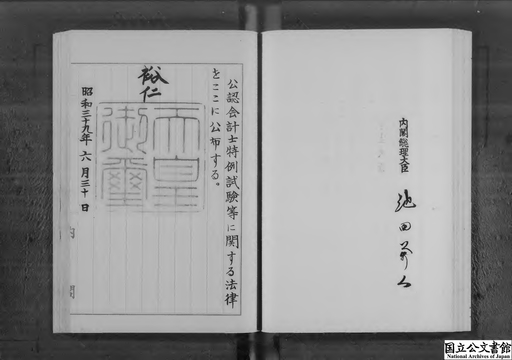 公認会計士特例試験等に関する法律
をここに公布する。
裕仁
天皇
御璽
昭和三十九年六月三十日
内閣総理大臣
池田勇人
国立公文書館
National Archives of Japan